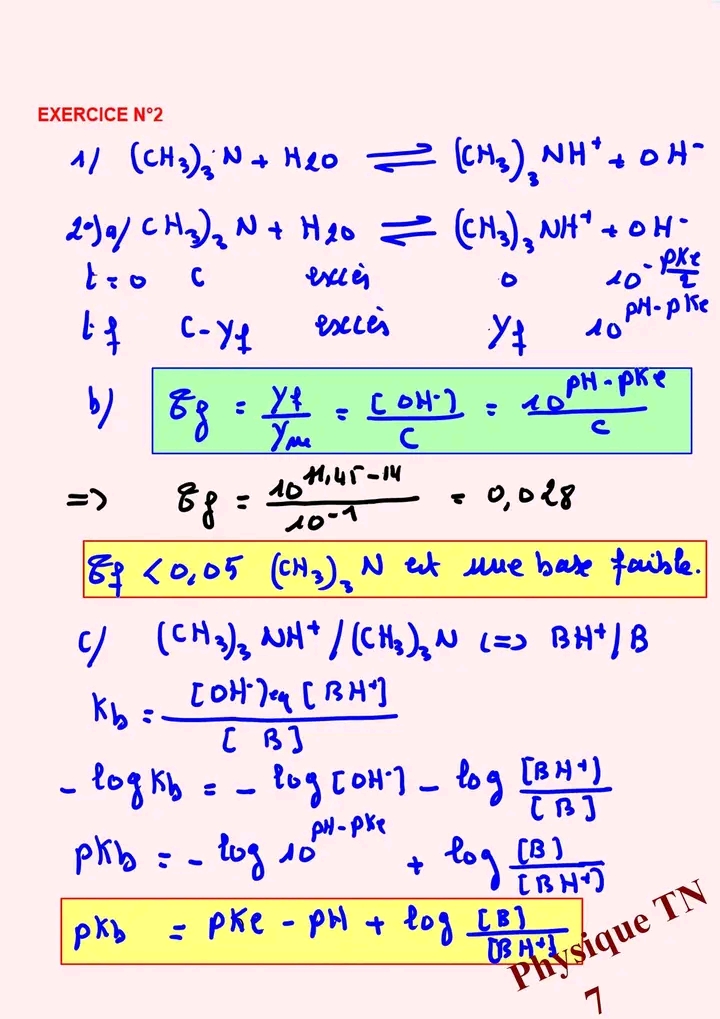 EXERCICE N°2
1/ (CH₃)₃N + H2O ⇌ (CH₃)₃NH⁺ + OH⁻
2°)a/ CH₃)₃N + H₂O ⇌ (CH₃)₃NH⁺ + OH⁻
t=0 C excès 0 10^(-pKe/2)
tf C-yf excès yf 10^(pH-pKe)
b) τf = yf/ym = [OH⁻]/C = 10^(pH-pKe)/C
=> τf = 10^(11,45-14)/10⁻¹ = 0,028
τf < 0,05 (CH₃)₃N est une base faible.
c/ (CH₃)₃NH⁺/(CH₃)₃N <=> BH⁺/B
Kb = [OH⁻]eq [BH⁺]/[B]
- log Kb = - log [OH⁻] - log [BH⁺]/[B]
pKb = - log 10^(pH-pKe) + log [B]/[BH⁺]
pKb = pKe - pH + log [B]/[BH⁺]
Physique TN
7